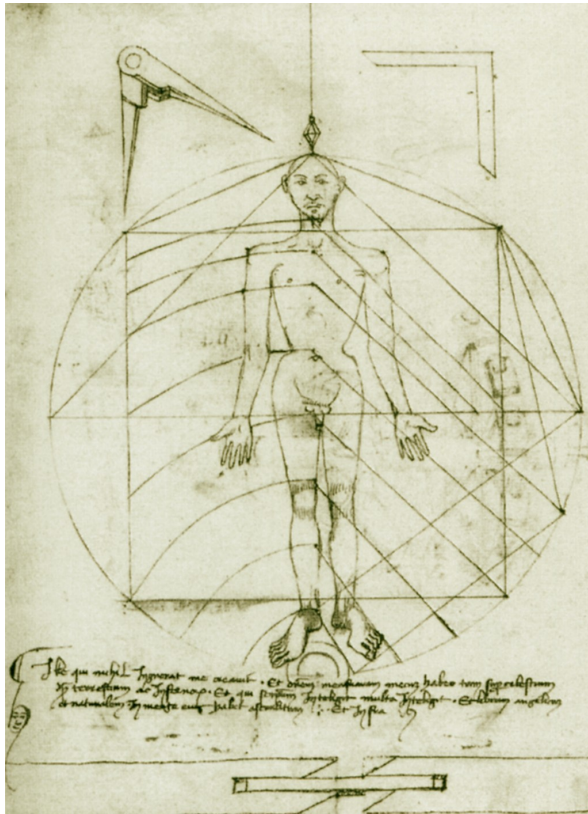 Ille qui nichil Ignorat me creauit · Et omem mensuram mecum habeo tam supcelestium
terrestrium ac Infernorum · Et qui seipsum Inteligit multa Inteligit · Et librum angelicum
et naturalem In mente eius habet absconditum : · Et Infra